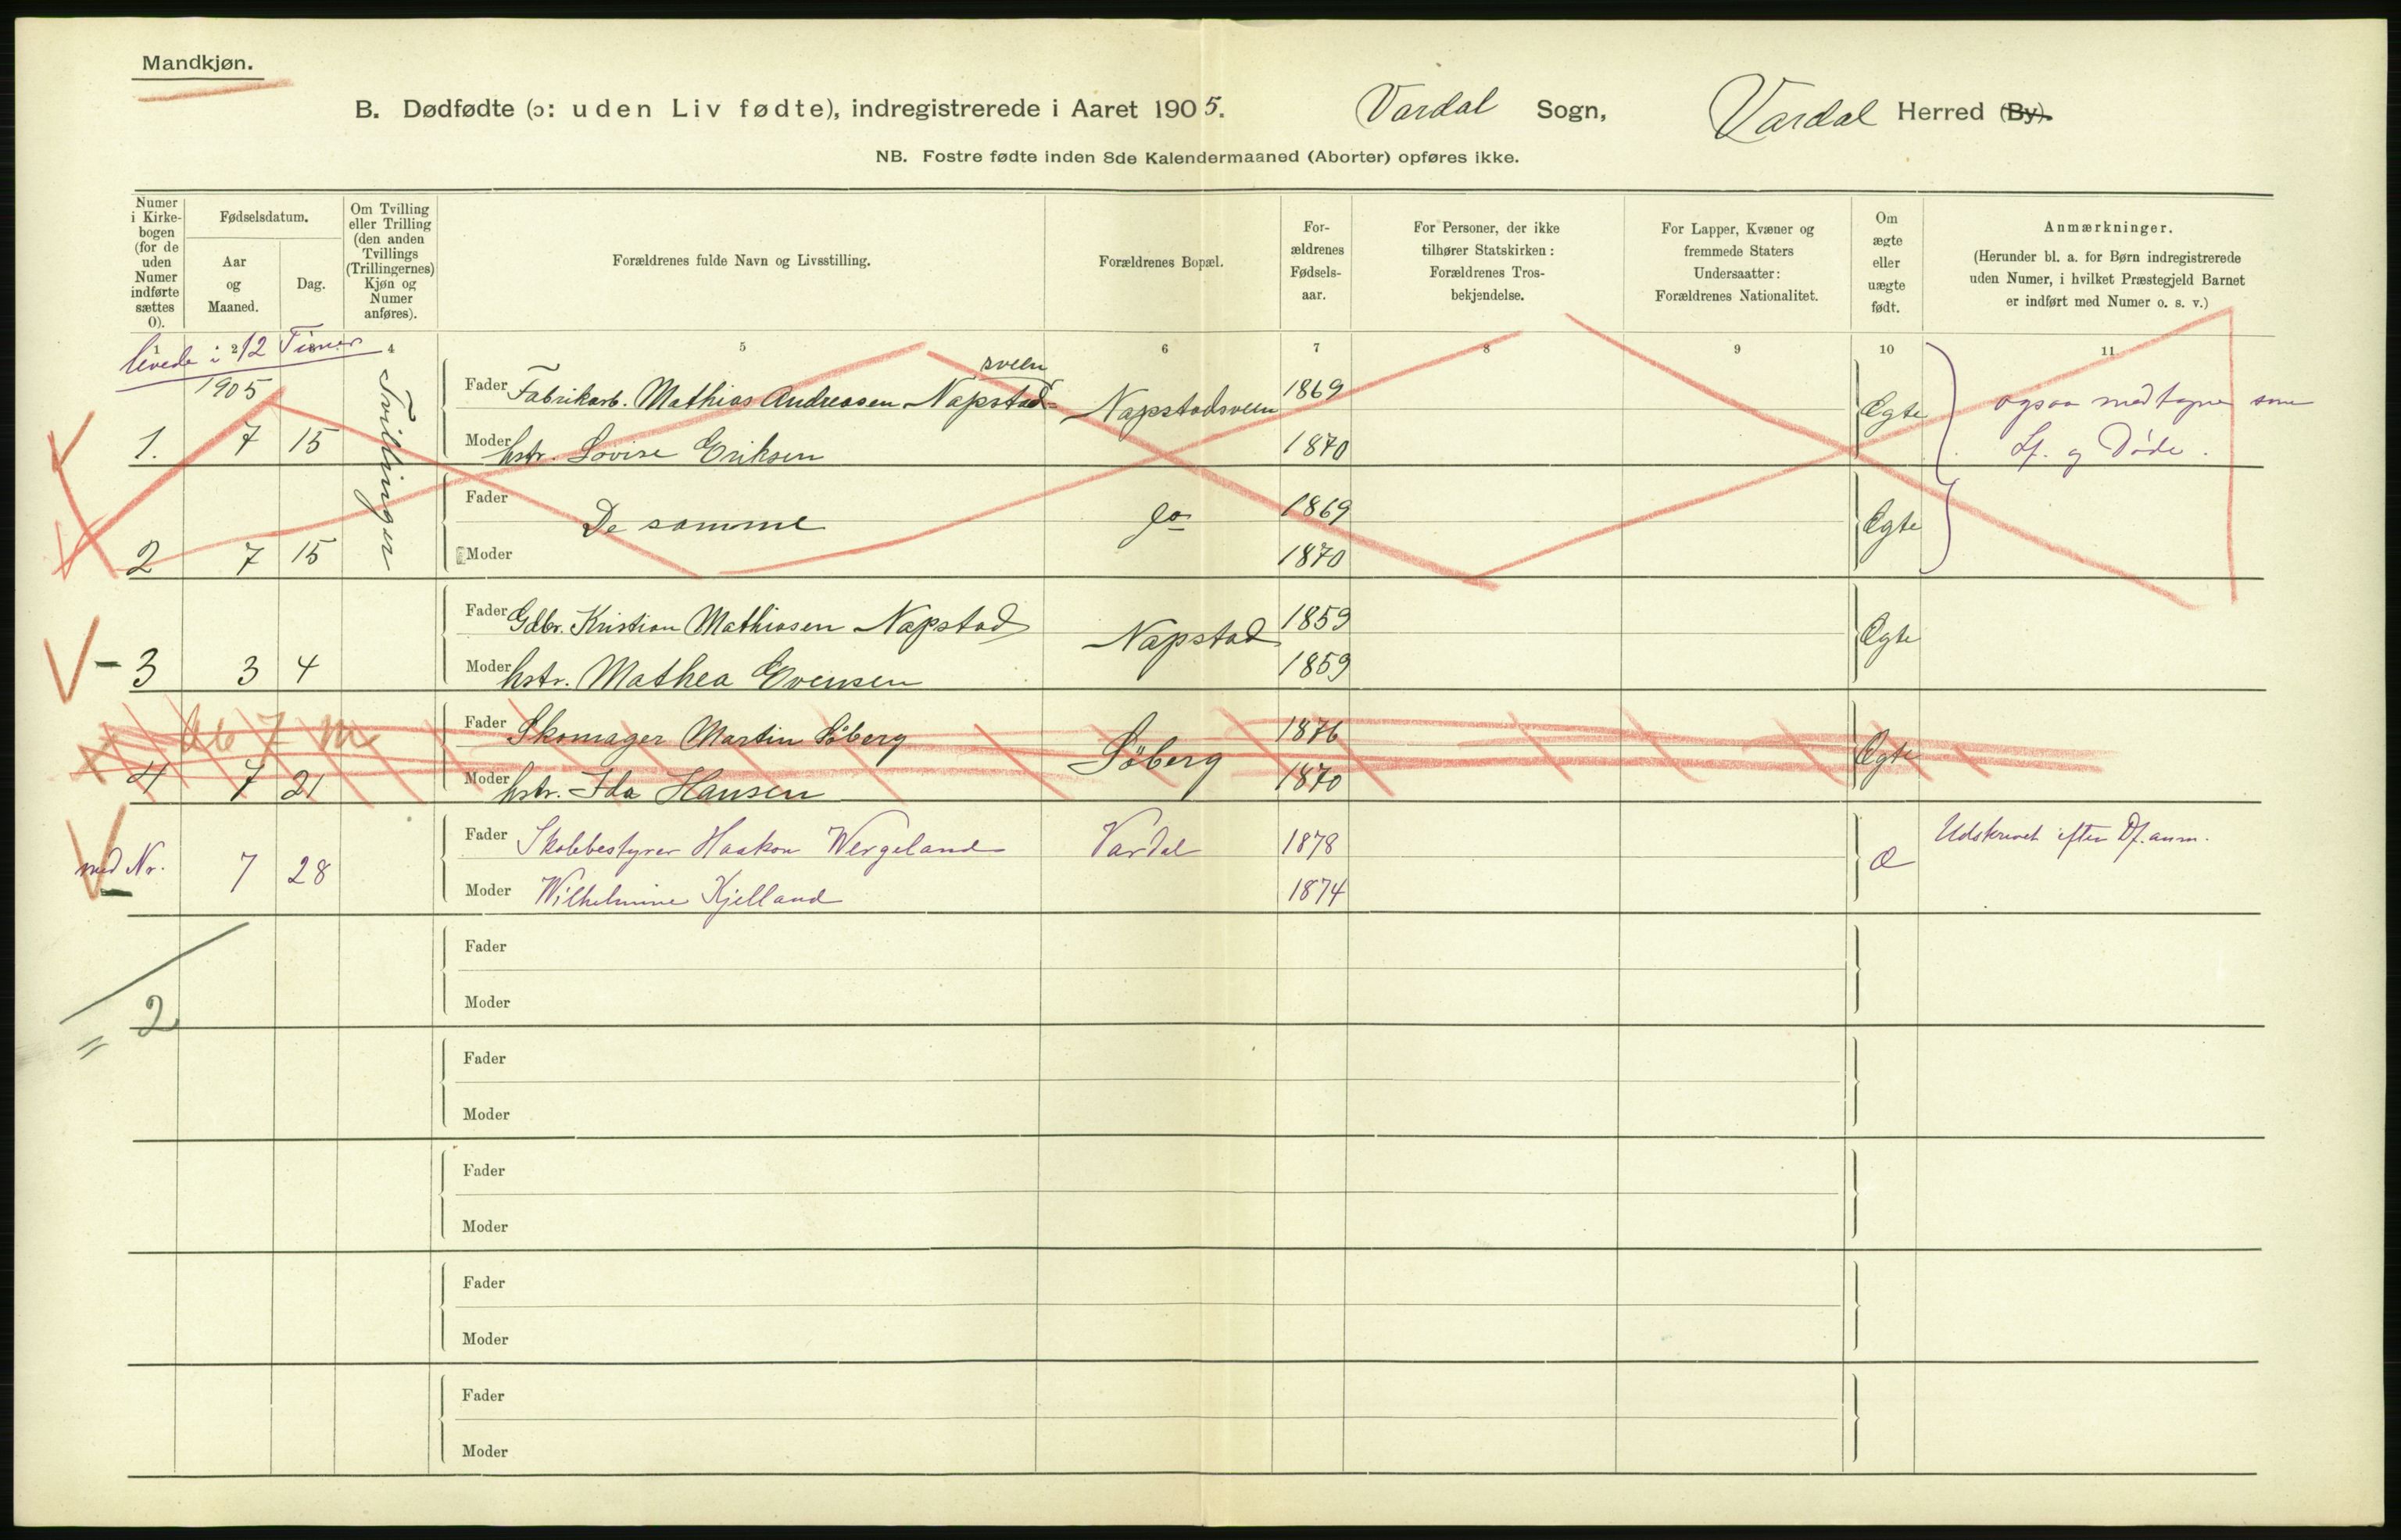 Mandkjøn.
B. Dødfødte (ɔ: uden Liv fødte), indregistrerede i Aaret 1905. Vardal Sogn, Vardal Herred (By).
NB. Fostre fødte inden 8de Kalendermaaned (Aborter) opføres ikke.
Numer i Kirkebogen (for de uden Numer indførte sættes 0).
Fødselsdatum.
Aar og Maaned.
Dag.
Om Tvilling eller Trilling (den anden Tvillings (Trillingernes) Kjøn og Numer anføres).
Forældrenes fulde Navn og Livsstilling.
Forældrenes Bopæl.
For-ældrenes Fødsels-aar.
For Personer, der ikke tilhører Statskirken: Forældrenes Tros-bekjendelse.
For Lapper, Kvæner og fremmede Staters Undersaatter: Forældrenes Nationalitet.
Om ægte eller uægte født.
Anmærkninger.
(Herunder bl. a. for Børn indregistrerede uden Numer, i hvilket Præstegjeld Barnet er indført med Numer o. s. v.)
1 2 3 4 5 6 7 8 9 10 11
levede i 12 Timer
1905
Tvillinger
sveen
Fader Fabrikarb. Mathias Andreasen Napstad- Napstadsveen 1869 Ægte ogsaa medtagne som
1. 7 15 Moder hstr. Lovise Eriksen 1870 Lf. og Døde.
Fader De samme do 1869 Ægte
2 7 15 Moder 1870
Fader Gdbr. Kristian Mathiasen Napstad Napstad 1859 Ægte
3 3 4 Moder hstr. Mathea Evensen 1859
Ab 7 m
Fader Skomager Martin Söberg Söberg 1876 Ægte
4 7 21 Moder hstr. Ida Hansen 1870
Fader Skolebestyrer Haakon Wergeland Vardal 1878 Æ Udskrevet efter Df. anm.
med Nr. 7 28 Moder Wilhelmine Kjelland 1874
Fader
Moder
= 2
Fader
Moder
Fader
Moder
Fader
Moder
Fader
Moder